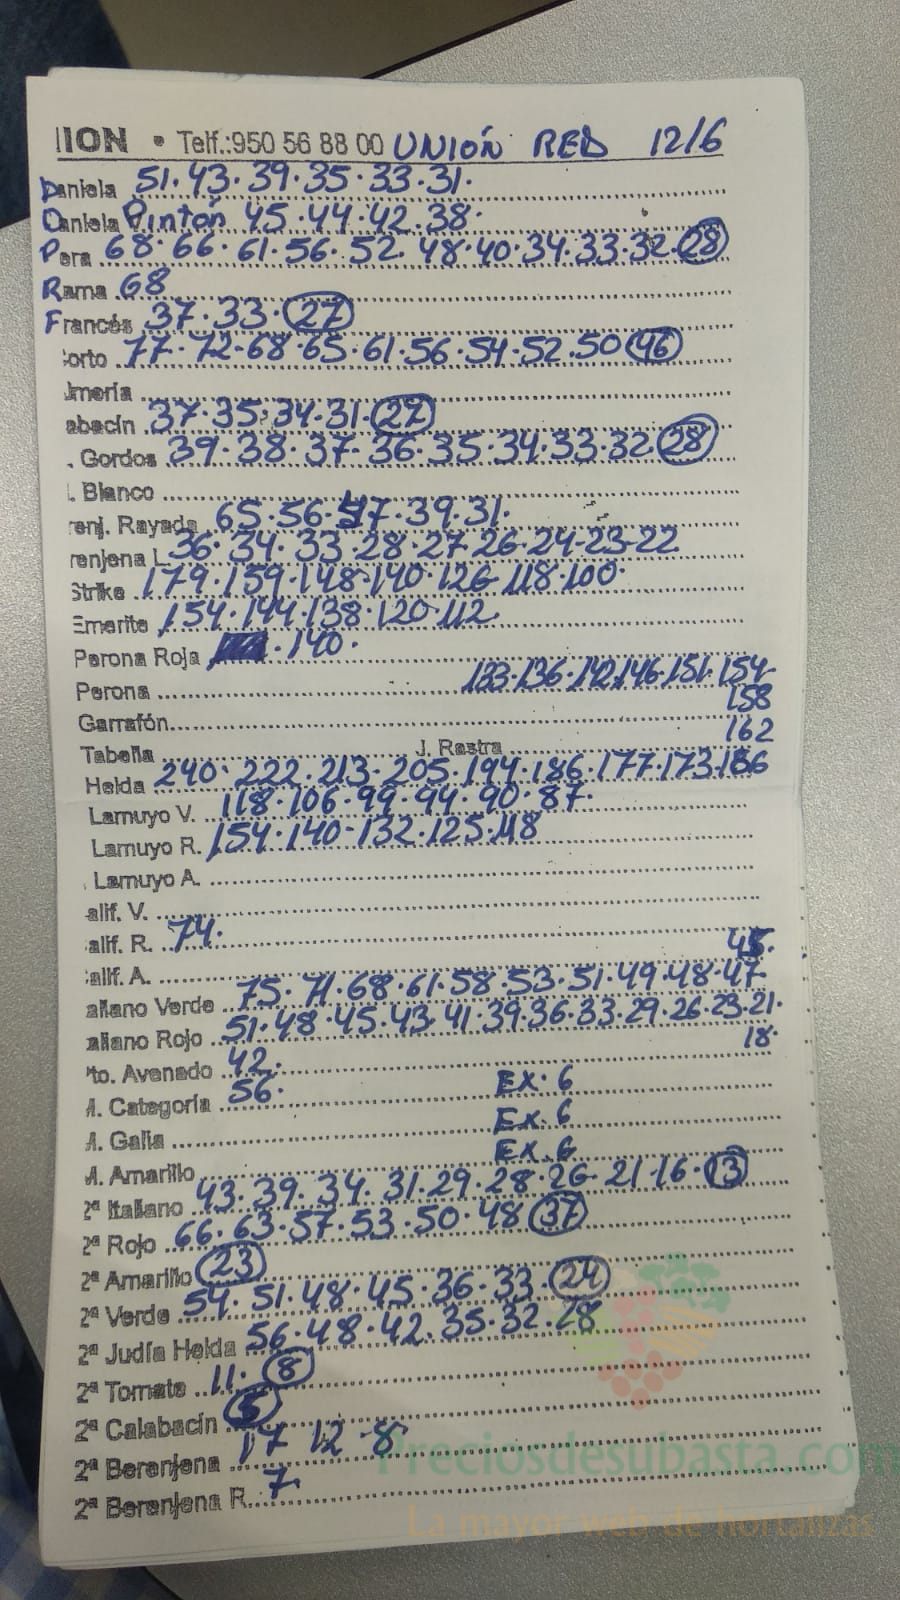 IION • Telf.:950 56 88 00 UNIÓN RED 12/6
Daniela 51.43.39.35.33.31.
Daniela Pintón 45.44.42.38.
Pera 68.66.61.56.52.48.40.34.33.32.28
Rama 68
Francés 37.33.27
orto 77.72-68.65.61.56.54.52.50 46
lmería
abacín 37.35.34.31.27
. Gordos 39.38.37.36.35.34.33.32.28
l. Blanco
renj. Rayada 65.56.47.39.31.
renjena L. 36.34.33.28.27.26-24-23-22
Strike 179.159.148.140.126.118.100.
Emerite 154.144.138.120.112.
Perona Roja .140.
Perona 133.136.142.146.151.154
158
Garrafón
162
Tabella J. Rastra
Helda 240.222.213.205.194.186.177.173.166
Lamuyo V. 118.106.99.94.90.87.
Lamuyo R. 154.140-132.125.118
. Lamuyo A.
alif. V.
alif. R. 74.
45.
alif. A.
aliano Verde 75.71.68.61.58.53.51.49.48.47
aliano Rojo 51.48.45.43.41.39.36.33.29.26.23.21.
18.
to. Avenado 42.
. Categoría 56. Ex. 6
. Galia Ex. 6
. Amarillo Ex. 6
2ª Italiano 43.39.34.31.29.28.26.21.16.13
2ª Rojo 66.63.57.53.50.48 37
2ª Amarillo 23
2ª Verde 54.51.48.45.36.33.24
2ª Judía Helda 56.48.42.35.32.28
2ª Tomate 11.8
2ª Calabacín 5
2ª Berenjena 17 12.8
2ª Berenjena R. 7
Preciosdesubasta.com
La mayor web de hortalizas